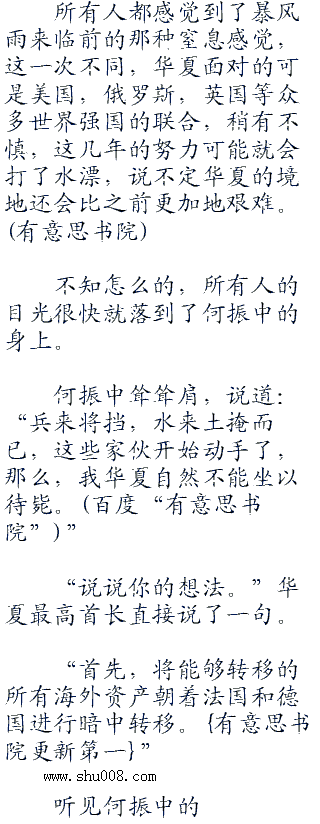 所有人都感觉到了暴风
雨来临前的那种窒息感觉，
这一次不同，华夏面对的可
是美国，俄罗斯，英国等众
多世界强国的联合，稍有不
慎，这几年的努力可能就会
打了水漂，说不定华夏的境
地还会比之前更加地艰难。
(有意思书院)
不知怎么的，所有人的
目光很快就落到了何振中的
身上。
何振中耸耸肩，说道：
“兵来将挡，水来土掩而
已，这些家伙开始动手了，
那么，我华夏自然不能坐以
待毙。(百度“有意思书
院”)”
“说说你的想法。”华
夏最高首长直接说了一句。
“首先，将能够转移的
所有海外资产朝着法国和德
国进行暗中转移。{有意思书
院更新第一}”
www.shu008.com
听见何振中的